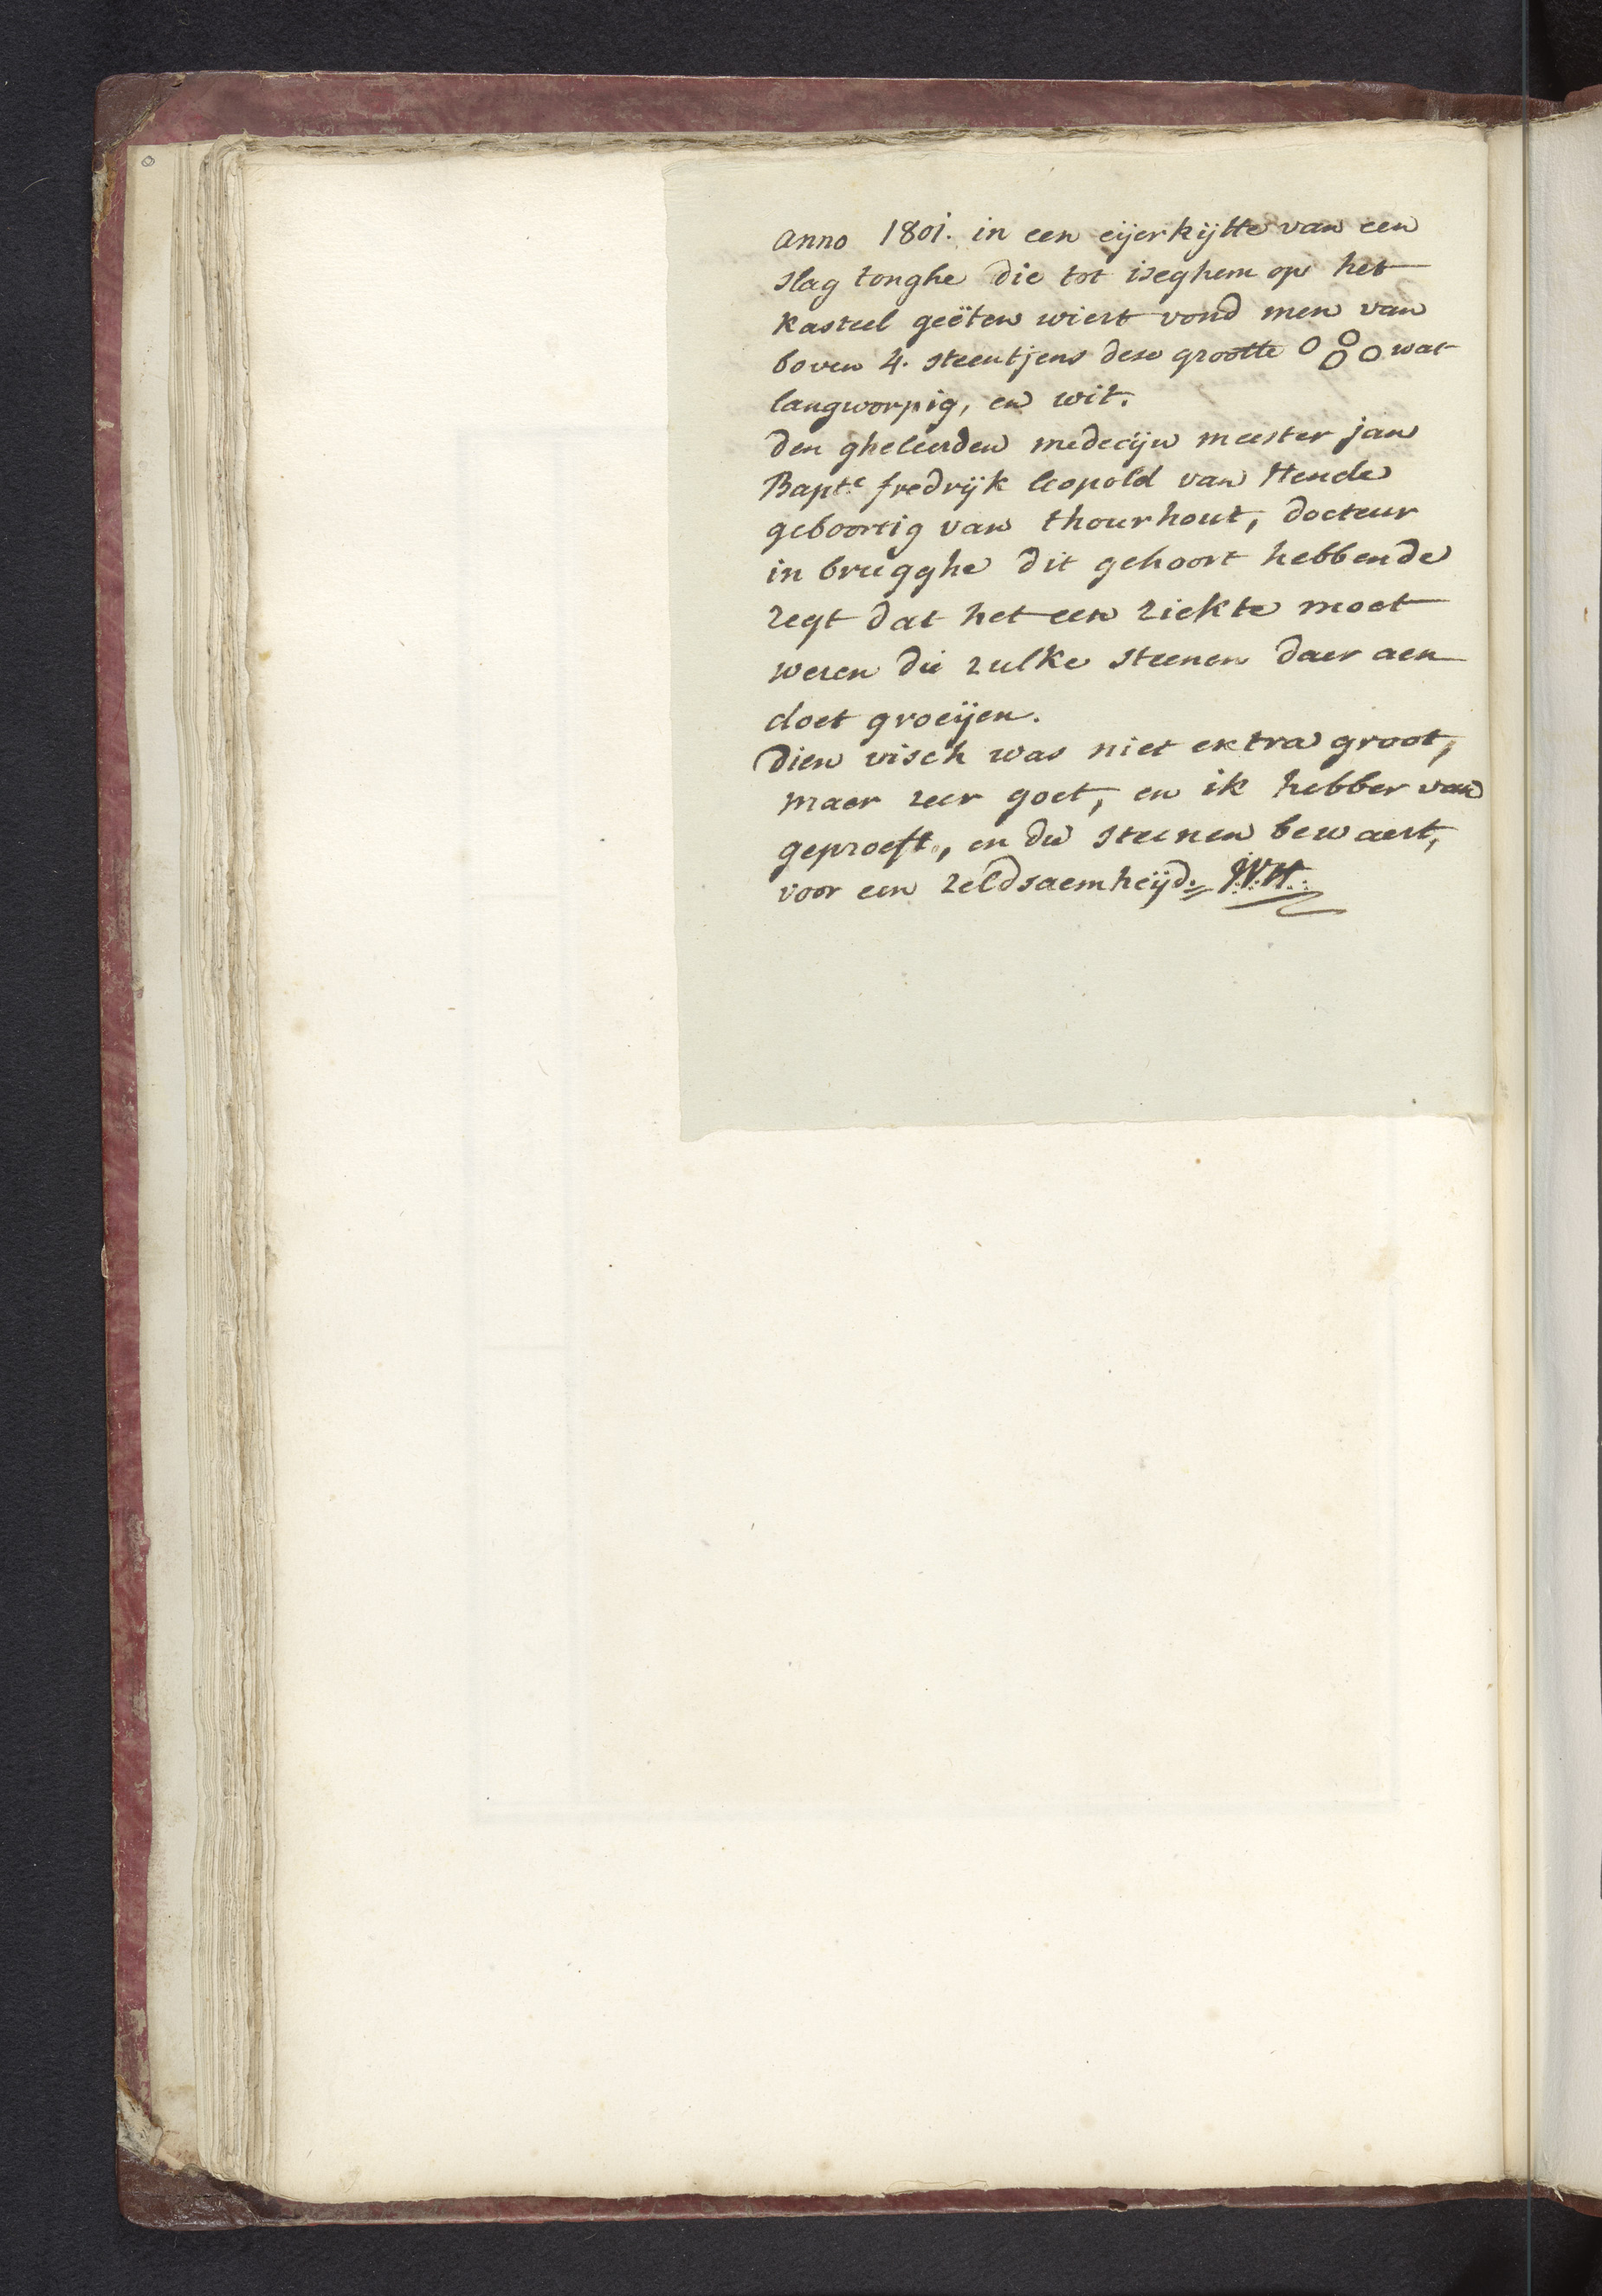 anno 1801. in een eijerkijtte van een
slag tonghe die tot iseghem op het
kasteel geëten wiert vond men van
boven 4. steentjens dese grootte wat
langworpig, en wit.
den gheleerden medecijn meester jan
Bapt.e fredrijk leopold van Hende
geboortig van thourhout, docteur
in brugghe dit gehoort hebbende
zegt dat het een ziekte moet
wezen die zulke steenen daer aen
doet groeijen.
dien visch was niet extra groot,
maer zeer goet, en ik hebber van
geproeft, en die steenen bewaert,
voor een zeldsaemheijd. J.V.H.